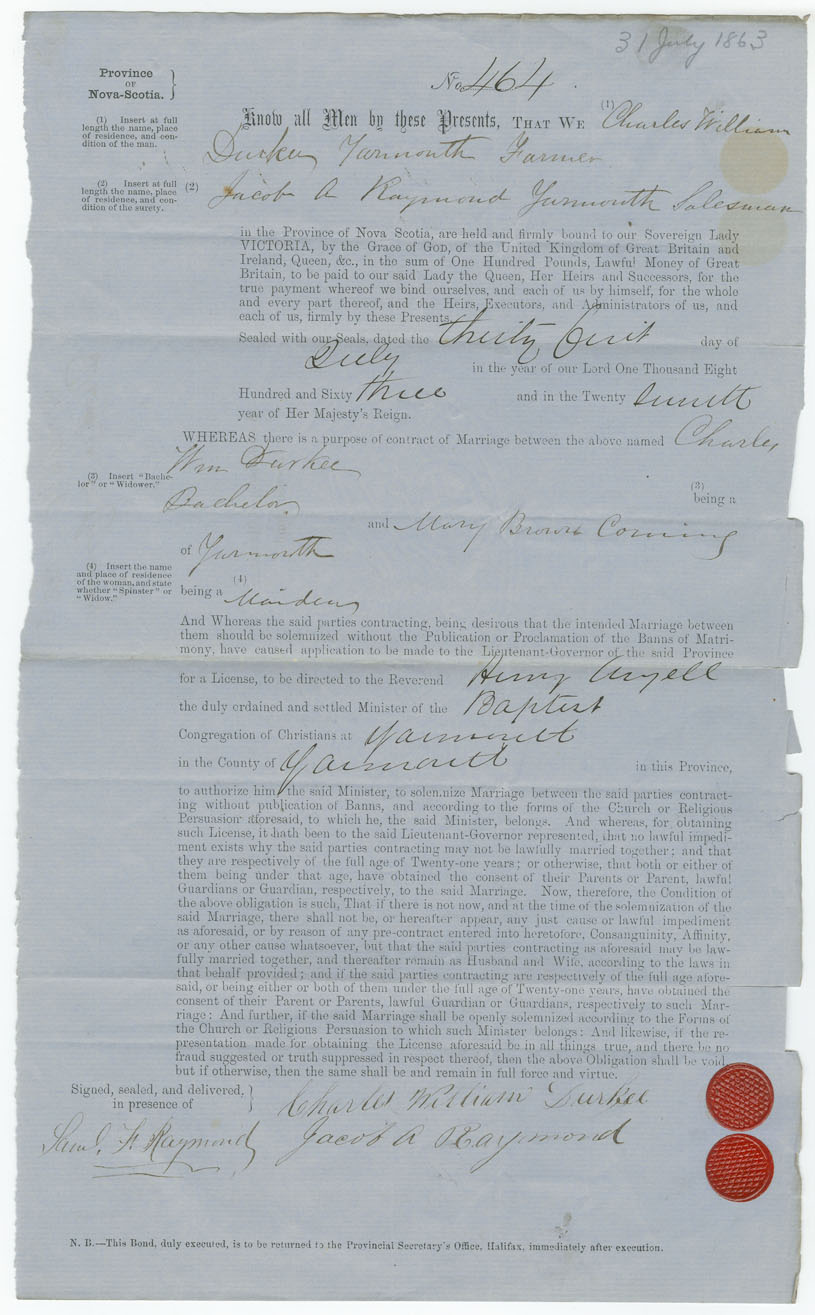 31 July 1863
Province
OF
Nova-Scotia.
No. 464
Know all Men by these Presents, THAT WE (1) Charles William
(1) Insert at full
length the name, place
of residence, and con-
dition of the man.
Durkee Yarmouth Farmer
(2) Insert at full
length the name, place
of residence, and con-
dition of the surety.
(2) Jacob A Raymond Yarmouth Salesman
in the Province of Nova Scotia, are held and firmly bound to our Sovereign Lady
VICTORIA, by the Grace of GOD, of the United Kingdom of Great Britain and
Ireland, Queen, &c., in the sum of One Hundred Pounds, Lawful Money of Great
Britain, to be paid to our said Lady the Queen, Her Heirs and Successors, for the
true payment whereof we bind ourselves, and each of us by himself, for the whole
and every part thereof, and the Heirs, Executors, and Administrators of us, and
each of us, firmly by these Presents.
Sealed with our Seals, dated the thirty first day of
July in the year of our Lord One Thousand Eight
Hundred and Sixty three and in the Twenty
year of Her Majesty's Reign.
WHEREAS there is a purpose of contract of Marriage between the above named Charles
Wm Durkee
(3) Insert "Bache-
lor" or "Widower."
(3)
being a
Bachelor
and Mary Brown Corning
of Yarmouth
(4) Insert the name
and place of residence
of the woman, and state
whether "Spinster" or
"Widow."
(4)
being a Maiden
And Whereas the said parties contracting, being desirous that the intended Marriage between
them should be solemnized without the Publication or Proclamation of the Banns of Matri-
mony, have caused application to be made to the Lieutenant-Governor of the said Province
for a License, to be directed to the Reverend Henry Angell
the duly ordained and settled Minister of the Baptist
Congregation of Christians at Yarmouth
in the County of Yarmouth in this Province,
to authorize him, the said Minister, to solemnize Marriage between the said parties contract-
ing without publication of Banns, and according to the forms of the Church or Religious
Persuasion aforesaid, to which he, the said Minister, belongs. And whereas, for obtaining
such License, it hath been to the said Lieutenant-Governor represented, that no lawful impedi-
ment exists why the said parties contracting may not be lawfully married together; and that
they are respectively of the full age of Twenty-one years; or otherwise, that both or either of
them being under that age, have obtained the consent of their Parents or Parent, lawful
Guardians or Guardian, respectively, to the said Marriage. Now, therefore, the Condition of
the above obligation is such, That if there is not now, and at the time of the solemnization of the
said Marriage, there shall not be, or hereafter appear, any just cause or lawful impediment
as aforesaid, or by reason of any pre-contract entered into heretofore, Consanguinity, Affinity,
or any other cause whatsoever, but that the said parties contracting as aforesaid may be law-
fully married together, and thereafter remain as Husband and Wife, according to the laws in
that behalf provided; and if the said parties contracting are respectively of the full age afore-
said, or being either or both of them under the full age of Twenty-one years, have obtained the
consent of their Parent or Parents, lawful Guardian or Guardians, respectively to such Mar-
riage: And further, if the said Marriage shall be openly solemnized according to the Forms of
the Church or Religious Persuasion to which such Minister belongs: And likewise, if the re-
presentation made for obtaining the License aforesaid be in all things true, and there be no
fraud suggested or truth suppressed in respect thereof, then the above Obligation shall be void,
but if otherwise, then the same shall be and remain in full force and virtue.
Signed, sealed, and delivered,
in presence of
Charles William Durkee
Saml. F. Raymond
Jacob A Raymond
N. B.—This Bond, duly executed, is to be returned to the Provincial Secretary's Office, Halifax, immediately after execution.